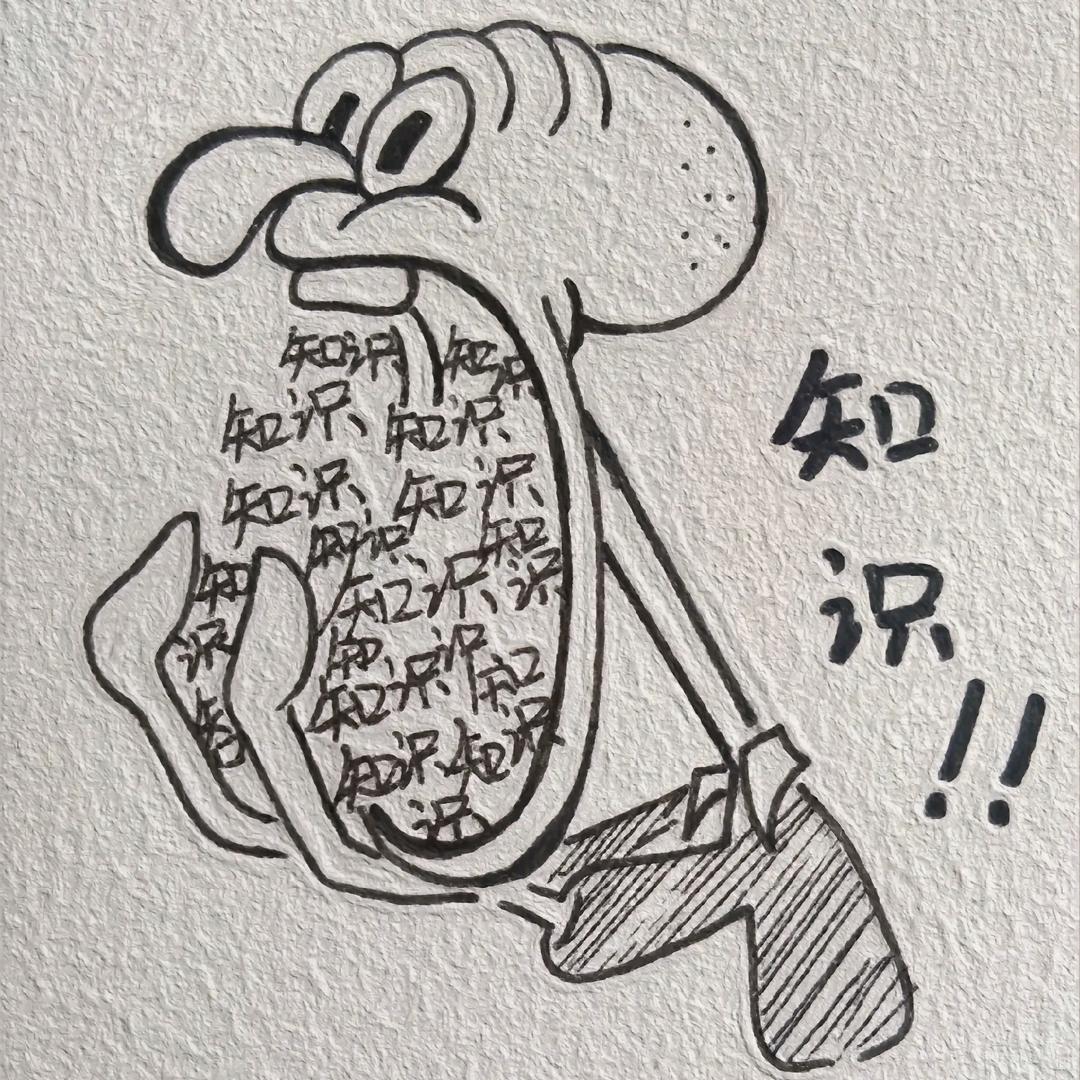 知识 知识
知识 知识
知识 知识
知识 知识
知识
知识知
知识 知识
知识 知识
识
知
识
!!